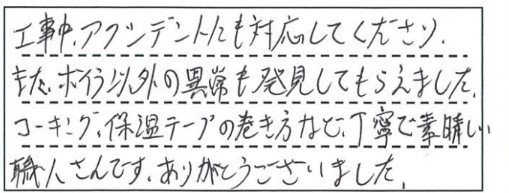 工事中、アクシデントにも対応してくださり、
また、ボイラ以外の異常も発見してもらえました。
コーキング、保温テープの巻き方など、丁寧で素晴しい
職人さんです。ありがとうございました。